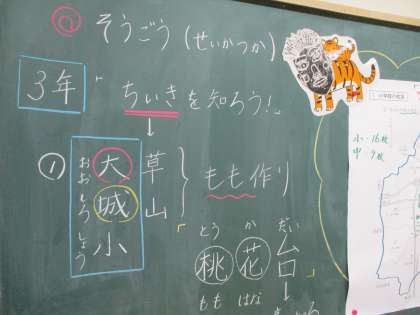 ◎ そうごう（せいかつか）
3年「ちいきを知ろう！」
↓
① 大城小
おおしろしょう
草山
もも作り
「桃花台」
とう か だい
もも はな
↓
小…16枚
中…9枚